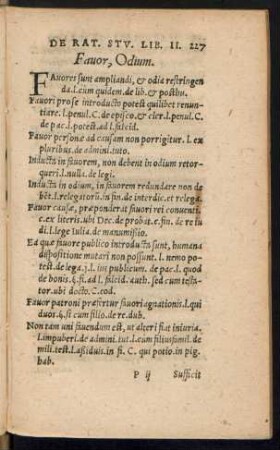 DE RAT. STV. LIB. II. 227
Fauor, Odium.
FAuores sunt ampliandi, & odia restringen
da.l.cum quidem.de lib.& posthu.
Fauori pro se introducto potest quilibet renun-
tiare.l.penul.C.de episco.& cler.l.penul.C.
de pac.l.potest.ad l.falcid.
Fauor personæ ad causam non porrigitur. l.ex
pluribus.de admini.tuto.
Inducta in fauorem, non debent in odium retor-
queri.l.nulla.de legi.
Inducta in odium, in fauorem redundare non de
bẽt.l.relegatorum.in fin.de interdic.et relega.
Fauor causæ, præponderat fauori rei conuenti.
c.ex literis.ubi Dec.de probat.æ.fin.de re iu
di.l.lege Iulia.de manumissio.
Ea quæ fauore publico introducta sunt, humana
dispositione mutari non possunt. l. nemo po-
test.de lega.j.l. ius publicum. de pac.l. quod
de bonis.§.fi.ad l. falcid. auth.sed cum testa-
tor.ubi docto.C.eod.
Fauor patroni præfertur fauori agnationis.l.qui
duos.§.si cum filio.de re.dub.
Non tam uni fauendum est, ut alteri fiat iniuria.
l.impuberi.de admini.tut.l.cum filiusfamil.de
mili.test.l.assiduis.in fi. C. qui potio.in pig.
hab.
P ij Sufficit